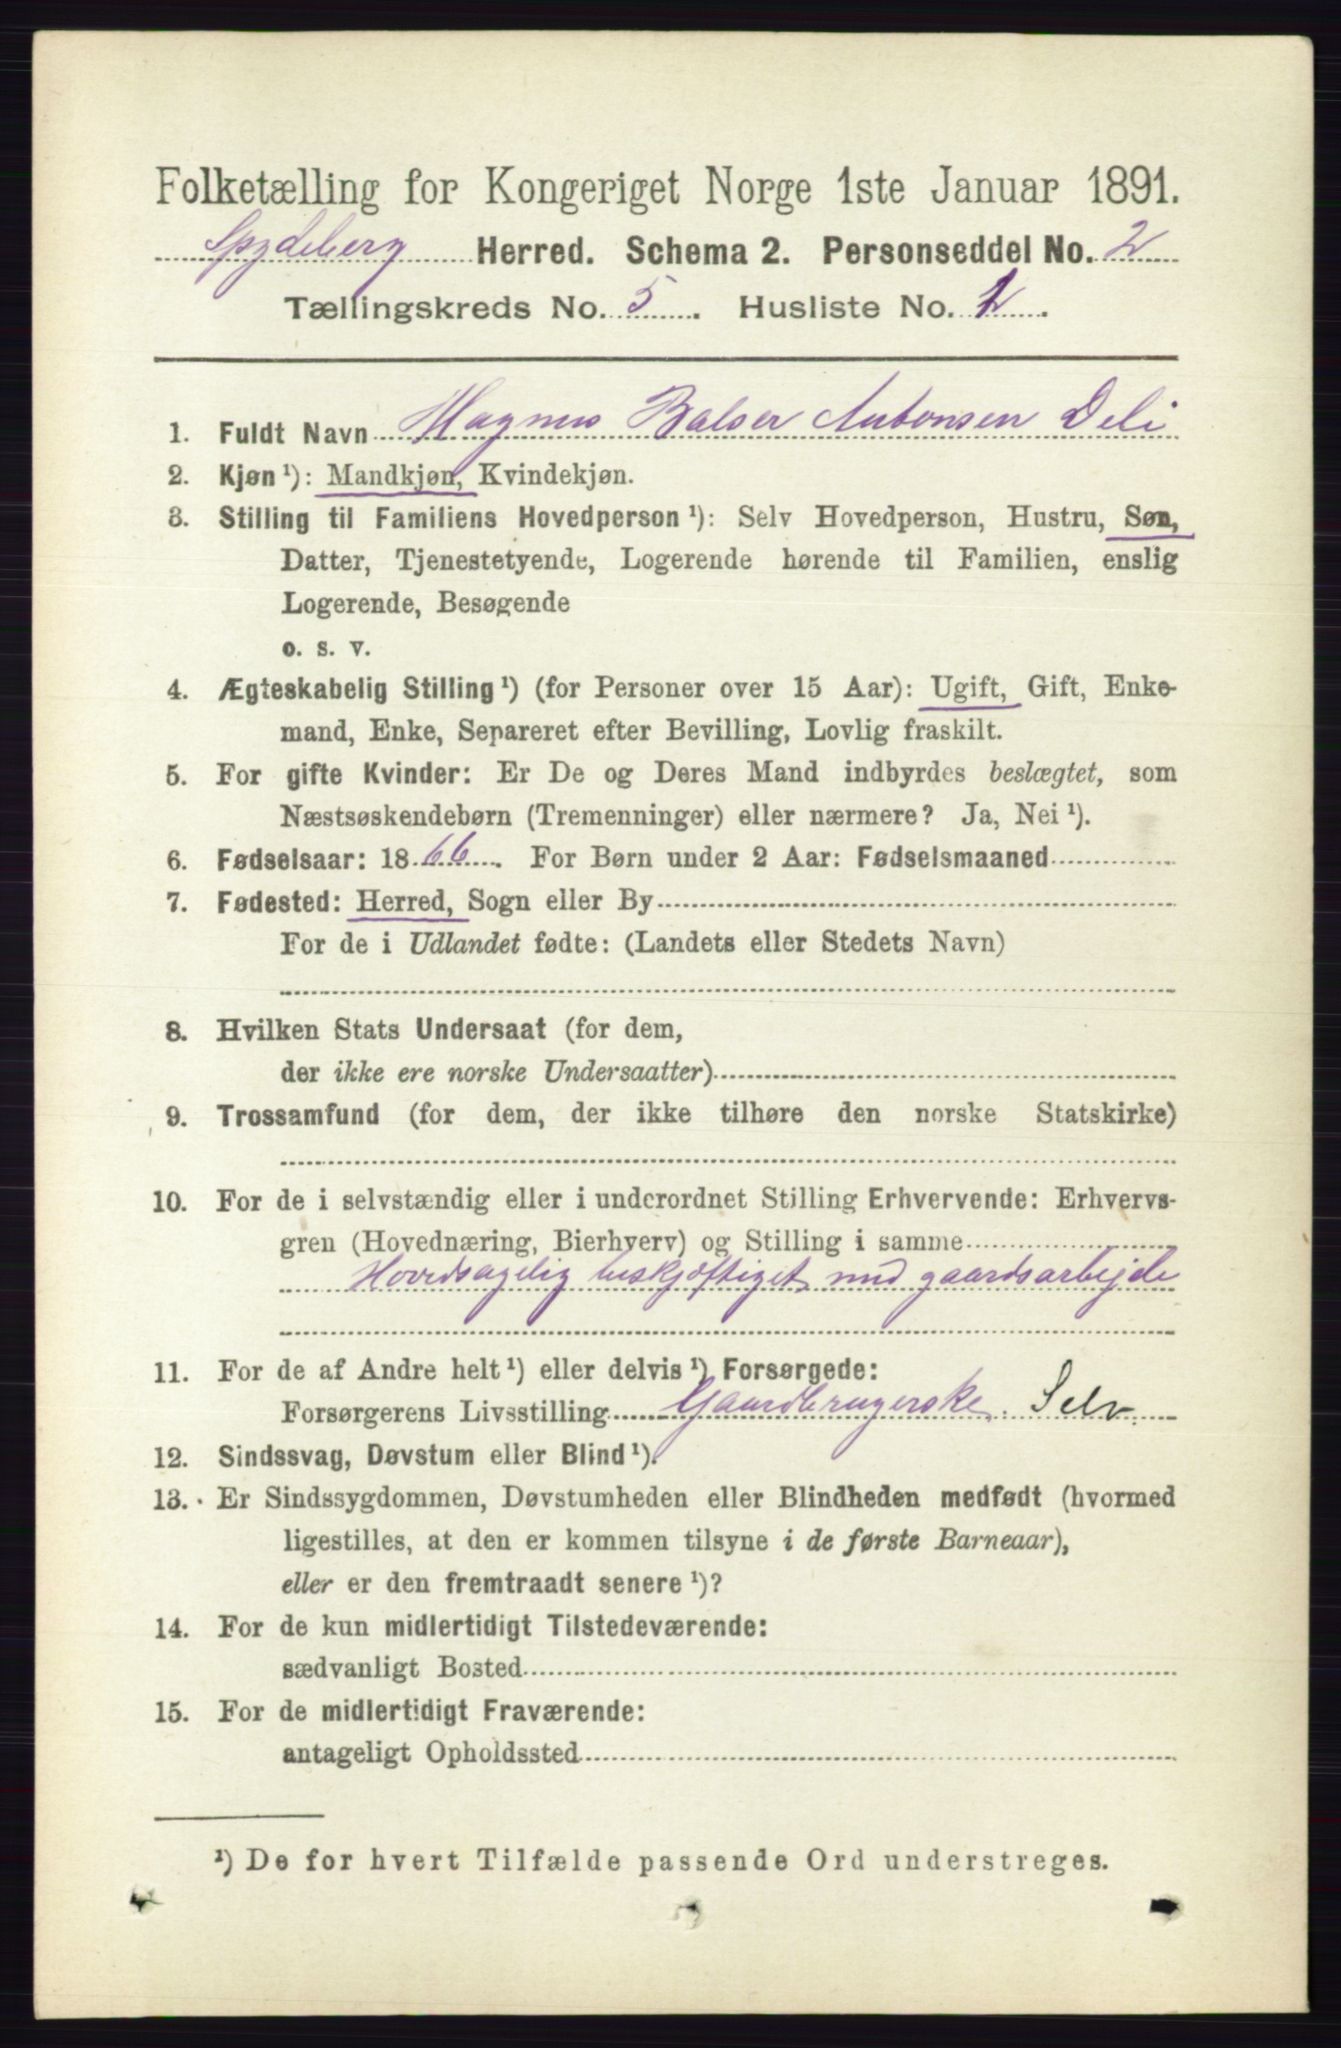 Folketælling for Kongeriget Norge 1ste Januar 1891.
Spydeberg Herred. Schema 2. Personseddel No. 2
Tællingskreds No. 5. Husliste No. 2.
1. Fuldt Navn Magnus Balser Antonsen Deli
2. Kjøn ¹): Mandkjøn, Kvindekjøn.
3. Stilling til Familiens Hovedperson ¹): Selv Hovedperson, Hustru, Søn,
Datter, Tjenestetyende, Logerende hørende til Familien, enslig
Logerende, Besøgende
o. s. v.
4. Ægteskabelig Stilling ¹) (for Personer over 15 Aar): Ugift, Gift, Enke-
mand, Enke, Separeret efter Bevilling, Lovlig fraskilt.
5. For gifte Kvinder: Er De og Deres Mand indbyrdes beslægtet, som
Næstsøskendebørn (Tremenninger) eller nærmere? Ja, Nei ¹).
6. Fødselsaar: 1866. For Børn under 2 Aar: Fødselsmaaned
7. Fødested: Herred, Sogn eller By
For de i Udlandet fødte: (Landets eller Stedets Navn)
8. Hvilken Stats Undersaat (for dem,
der ikke ere norske Undersaatter)
9. Trossamfund (for dem, der ikke tilhøre den norske Statskirke)
10. For de i selvstændig eller i underordnet Stilling Erhvervende: Erhvervs-
gren (Hovednæring, Bierhverv) og Stilling i samme
Hovedsagelig beskjæftiget med gaardsarbejde
11. For de af Andre helt ¹) eller delvis ¹) Forsørgede:
Forsørgerens Livsstilling Gaardbrugerske. Selv
12. Sindssvag, Døvstum eller Blind ¹).
13. Er Sindssygdommen, Døvstumheden eller Blindheden medfødt (hvormed
ligestilles, at den er kommen tilsyne i de første Barneaar),
eller er den fremtraadt senere ¹)?
14. For de kun midlertidigt Tilstedeværende:
sædvanligt Bosted
15. For de midlertidigt Fraværende:
antageligt Opholdssted
¹) De for hvert Tilfælde passende Ord understreges.